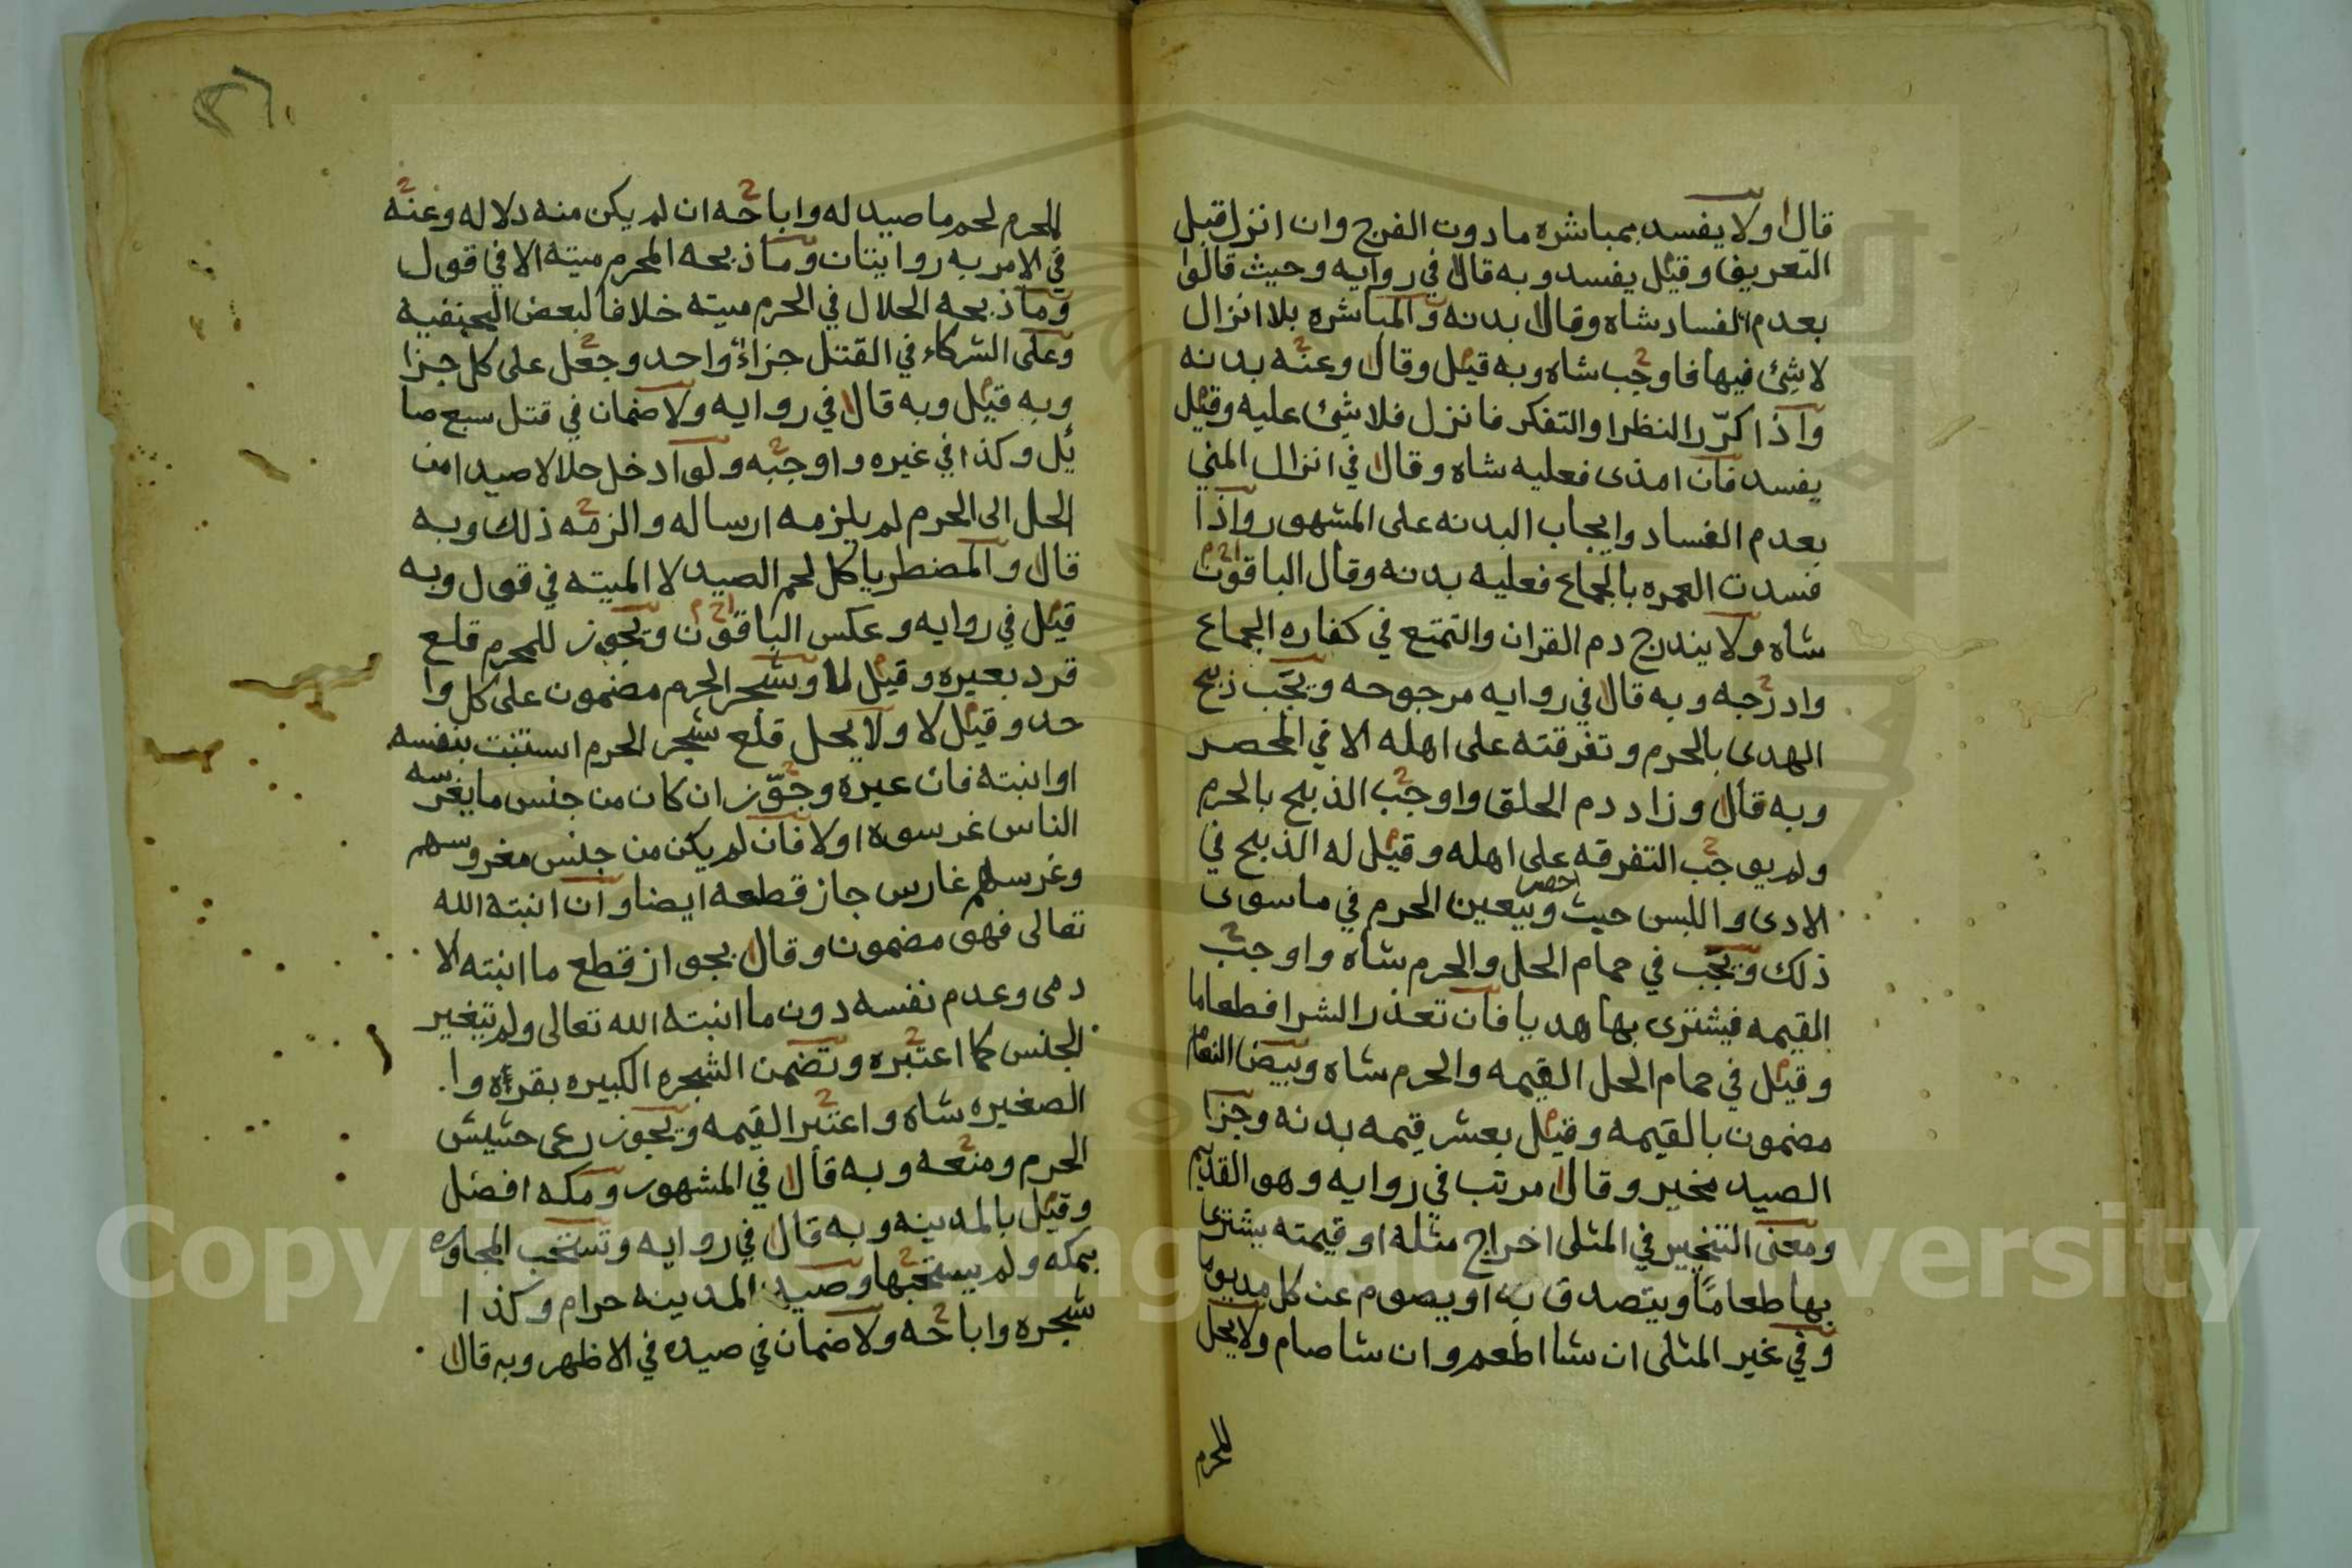 قال ولا يفسد بمباشره مادون الفرج وان انزل قبل
التعريف وقيل يفسد وبه قال في روايه وحيث قالوا
بعدم الفساد شاه وقال بدنه والمباشره بلا انزال
لا شئ فيها فاوجب شاه وبه قيل وقال وعنه بدنه
واذا كرّر النظر او التفكر فانزل فلا شئ عليه وقيل
يفسد فان امذى فعليه شاه وقال في انزال المني
بعدم الفساد وايجاب البدنه على المشهور واذا
فسدت العمره بالجماع فعليه بدنه وقال الباقون
شاه ولا يندرج دم القران والتمتع في كفاره الجماع
وادرجه وبه قال في روايه مرجوحه ويجب ذبح
الهدى بالحرم وتفرقته على اهله الا في المحصر
وبه قال وزاد دم الحلق واوجب الذبح بالحرم
ولم يوجب التفرقه على اهله وقيل له الذبح في
الاذى واللبس حيث احصر ويتعين الحرم في ما سوى
ذلك ويجب في حمام الحل والحرم شاه واوجب
القيمه فيشترى بها هديا فان تعذر الشرا فطعاما
وقيل في حمام الحل القيمه والحرم شاه وبيض النعام
مضمون بالقيمه وقيل بعشر قيمه بدنه وجزا
الصيد مخير وقال مرتب في روايه وهو القديم
ومعنى التخيير في المثلى اخراج مثله او قيمته يشترى
بها طعامًا ويتصدق به او يصوم عن كل مد يوما
وفي غير المثلى ان شا اطعم وان شا صام ولا يحل
للمحرم
للمحرم لحم ما صيد له واباحه ان لم يكن منه دلاله وعنه
في الامر به روايتان وما ذبحه المحرم ميته الا في قول
وما ذبحه الحلال في الحرم ميته خلافا لبعض الحنفيه
وعلى الشركاء في القتل جزاء واحد وجعل على كل جزا
وبه قيل وبه قال في روايه ولا ضمان في قتل سبع صا
ئل وكذا في غيره واوجبه ولو ادخل حلالا صيدا من
الحل الى الحرم لم يلزمه ارساله والزمه ذلك وبه
قال والمضطر ياكل لحم الصيد لا الميته في قول وبه
قيل في روايه وعكس الباقون ويجوز للمحرم قلع
قرد بعيره وقيل لا وشجر الحرم مضمون على كل وا
حد وقيل لا ولا يحل قلع شجر الحرم استنبت بنفسه
او انبته فان غيره وجوّز ان كان من جنس ما يغرسه
الناس غرسوه اولا فان لم يكن من جنس مغروسهم
وغرسه غارس جاز قطعه ايضا وان انبته الله
تعالى فهو مضمون وقال بجواز قطع ما انبته الا
دمى وعدم نفسه دون ما انبته الله تعالى ولم يتغير
الجنس كما اعتبره وتضمن الشجره الكبيره بقره وا
الصغيره شاه واعتبر القيمه ويجوز رعى حشيش
الحرم ومنعه وبه قال في المشهور ومكه افضل
وقيل بالمدينه وبه قال في روايه وتستحب المجاوره
بمكه ولم يستحبها وصيد المدينه حرام وكذا
شجره واباحه ولا ضمان في صيده في الاظهر وبه قال
Copyright © King Saud University